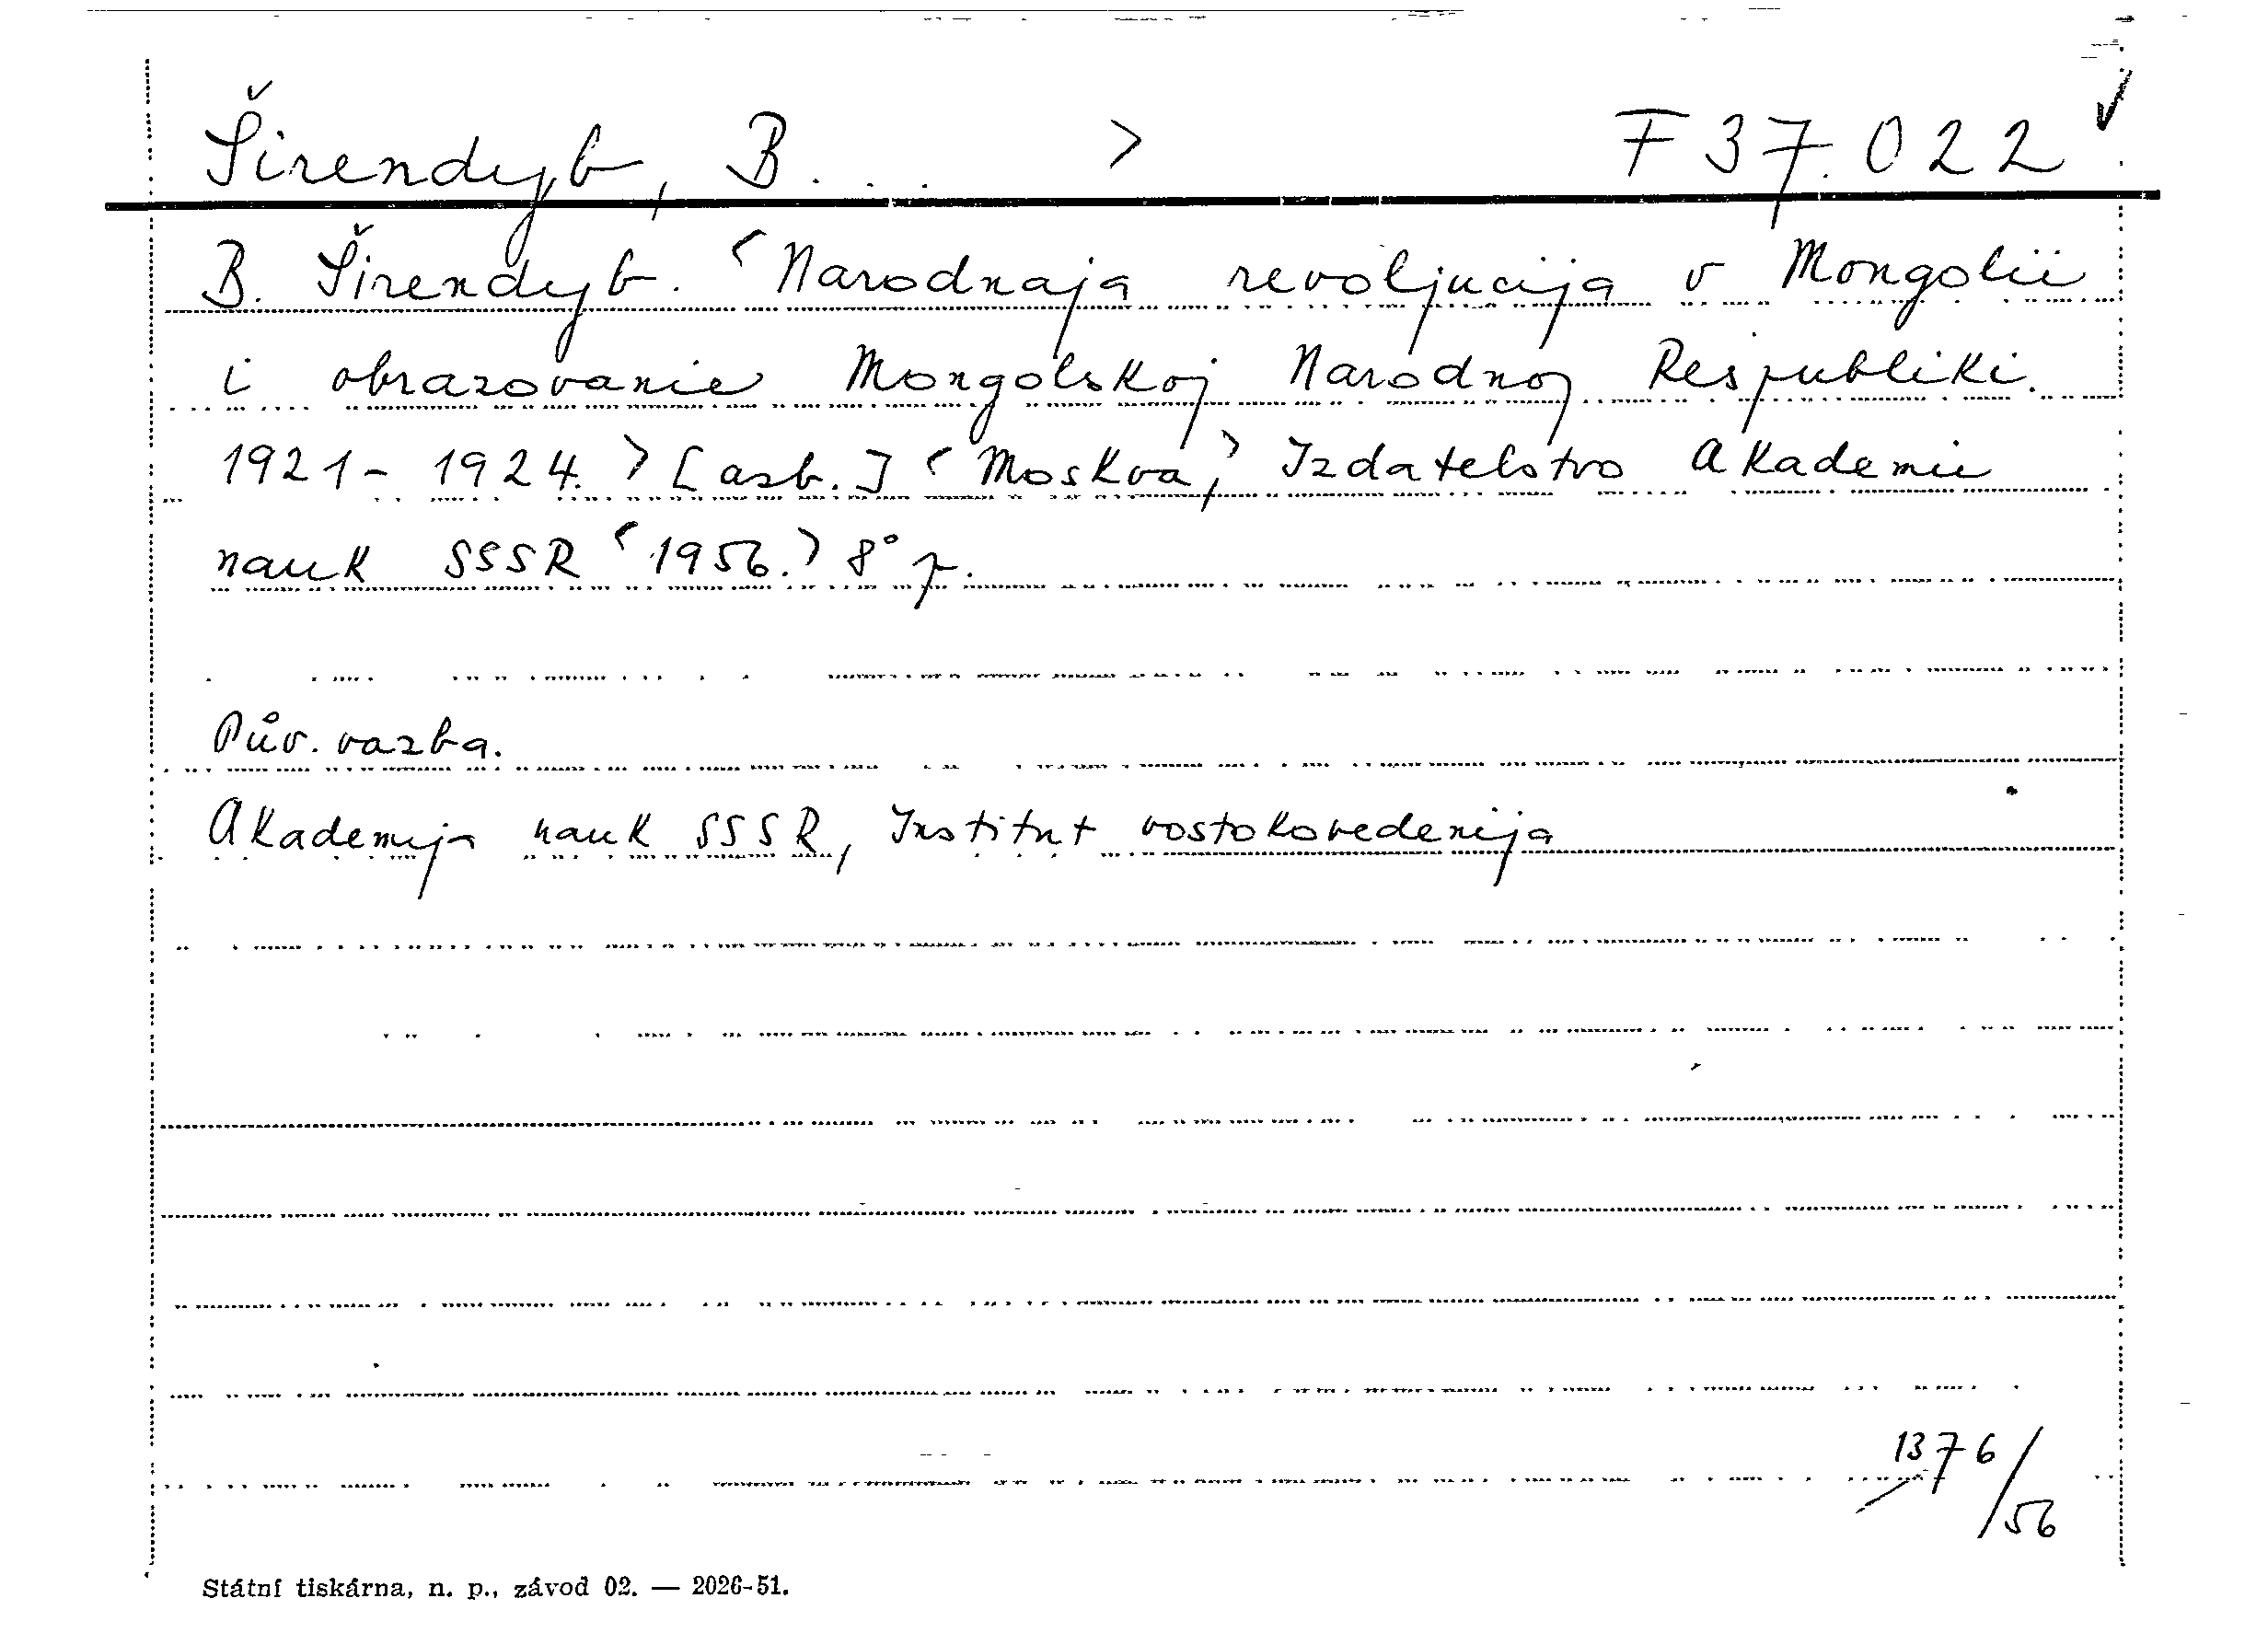 Širendyb, B. . . > F 37.022 ✓
B. Širendyb. <Narodnaja revoljucija v Mongolii
i obrazovanie Mongolskoj Narodnoj Respubliki.
1921-1924.> [azb.] <Moskva,> Izdatelstvo Akademii
nauk SSSR <1956.> 8° p.
Pův. vazba.
Akademija nauk SSSR, Institut vostokovedenija
1376/56
Státní tiskárna, n. p., závod 02. — 2026-51.